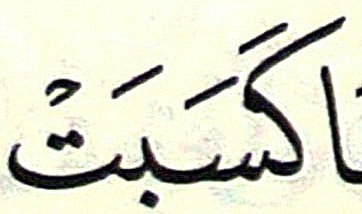 ا كَسَبَتْ